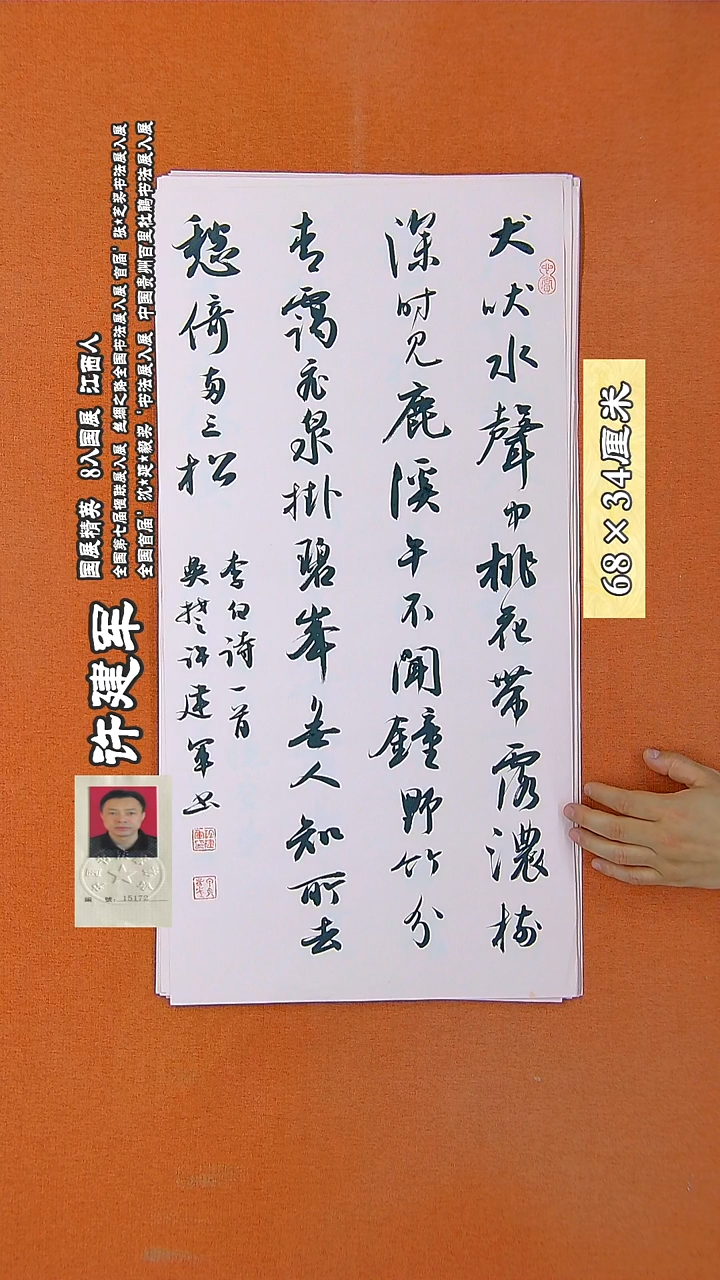 犬吠水聲中桃花帶露濃樹
深时见鹿溪午不聞鐘野竹分
青靄飛泉掛碧峯無人知所去
愁倚兩三松
李白诗一首
吳楚许建军书
许建军
国展精英 8入国展 江西人
全国第七届楹联展入展 丝绸之路全国书法展入展 首届'张*芝奖书法展入展
全国首届'沈*延*毅奖'书法展入展 中国贵州百里杜鹃书法展入展
68×34厘米
編 號: 15172